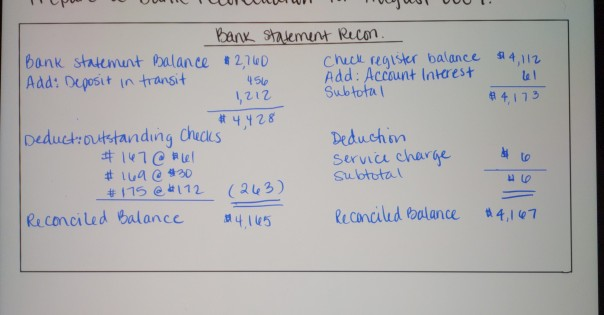 Prepare a bank reconciliation for August
Bank Statement Recon.
Bank Statement Balance $2,760
Add: Deposit in transit 456
1,212
$4,428
Deduct: outstanding Checks
#167 @ $61
#169 @ $30
#175 @ $172 (263)
Reconciled Balance $4,165
Check register balance $4,112
Add: Account Interest 61
Subtotal $4,173
Deduction
Service charge $6
Subtotal $6
Reconciled Balance $4,167